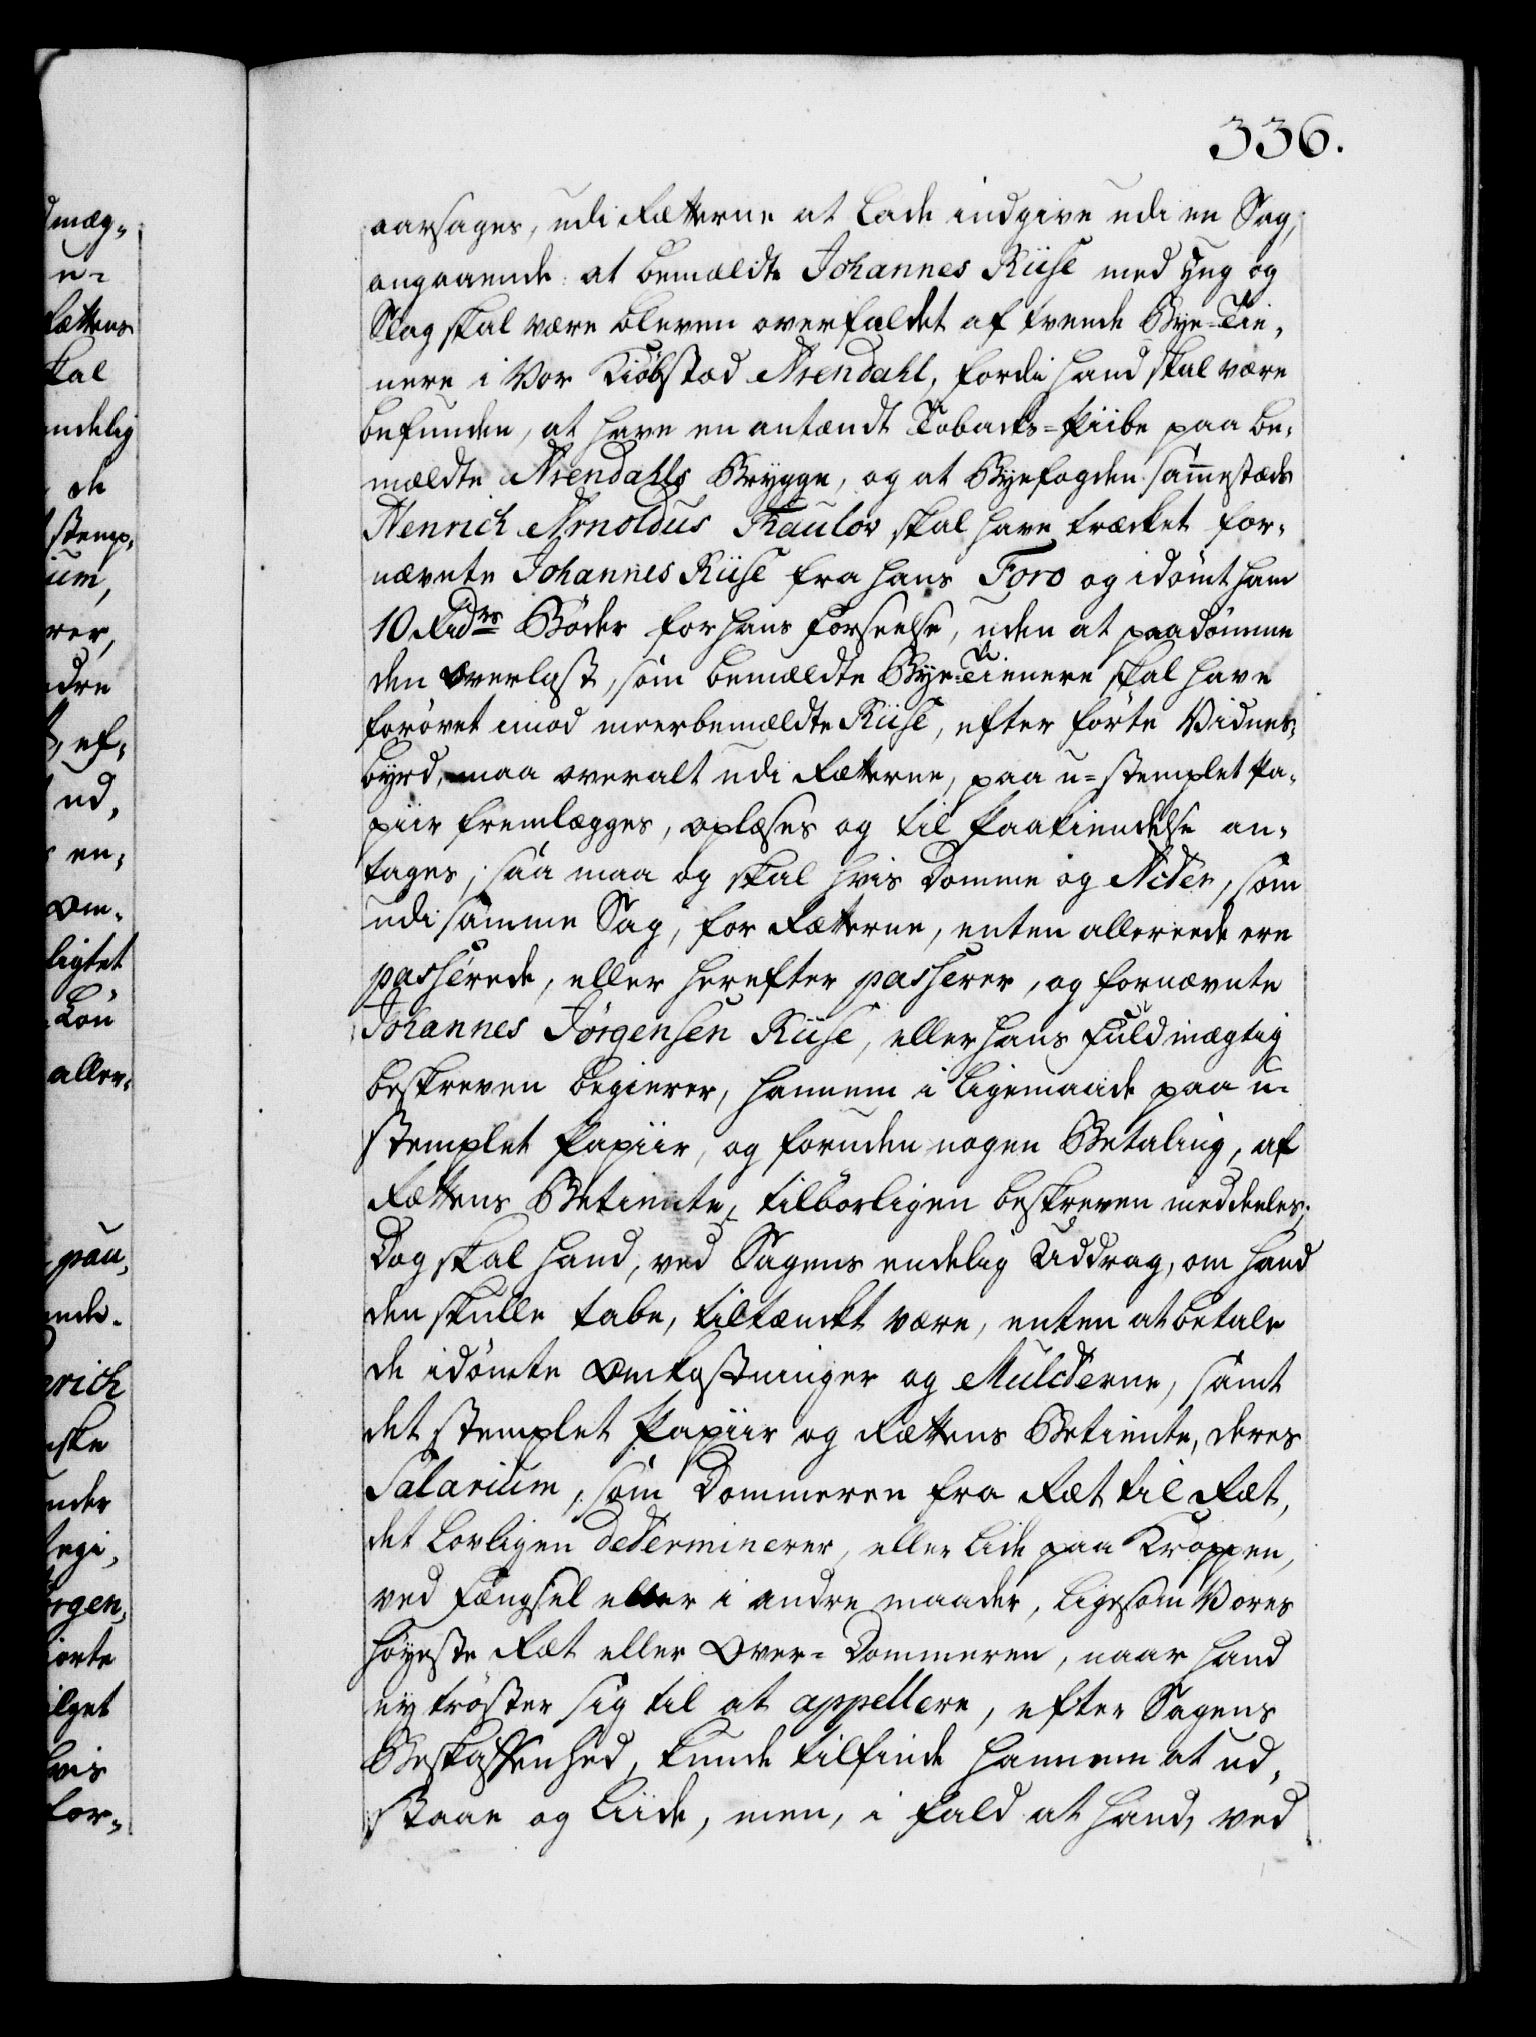 336.
aarsages, udi Rætterne at lade indgive udi en Sag,
angaaende at bemældte Johannes Riise med Hug og
Slag skal være bleven overfaldet af tvende Bye-Tie,
nere i Vor Kiöbstad Arendahl, fordi hand skal være
befunden, at have en antændt Tobacks-Piibe paa be,
mældte Arendahls Brygge, og at Byefogden samestæds
Henrich Arnoldus Thaulow skal have trecket for,
nævnte Johannes Riise fra hans Foro og idömt ham
10 Rdrs Böder for hans Forseelse, uden at paadömme
den Overlast, som bemældte Bye-Tienere skal have
forövet imod meerbemældte Riise, efter förte Vidnes,
byrd, maa overalt udi Rætterne, paa u-stemplet Pa,
piir fremlægges, oplæses og til Paakiendelse an,
tages; saa maa og skal hvis Domme og Acter, som
udi samme Sag, for Rætterne, enten allereede ere
passerede, eller herefter passerer, og fornævnte
Johannes Jörgensen Riise, eller hans Fuldmægtig
beskreven begierer, hannem i ligemaade paa u-
stemplet Papiir, og foruden nogen Betaling, af
Rættens Betiente, tilbörligen beskreven meddeeles;
Dog skal hand, ved Sagens endelig Uddrag, om hand
den skulle tabe, tiltænckt være, enten at betale
de idömte Omkostninger og Mulcterne, samt
det stemplet Papiir og Rættens Betiente, deres
Salarium, som Dommeren fra Ræt til Ræt,
det lovligen determinerer, eller lide paa Kroppen,
ved Fængsel eller i andre maader, ligesom Vores
Höyeste Ræt eller Over-Dommeren, naar hand
ey tröster sig til at appellere, efter Sagens
Beskaffenhed, kunde tilfinde hannem at ud,
staae og liide, men, i fald at hand, ved